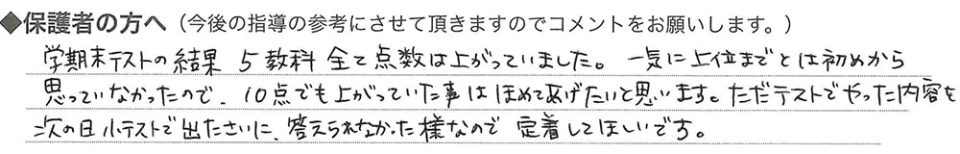 ◆保護者の方へ（今後の指導の参考にさせて頂きますのでコメントをお願いします。）
学期末テストの結果 5教科 全て点数は上がっていました。 一気に上位までとは初めから
思っていなかったので、10点でも上がっていた事は ほめてあげたいと思います。ただテストでやった内容を
次の日 小テストで出たさいに、答えられなかった様なので 定着してほしいです。